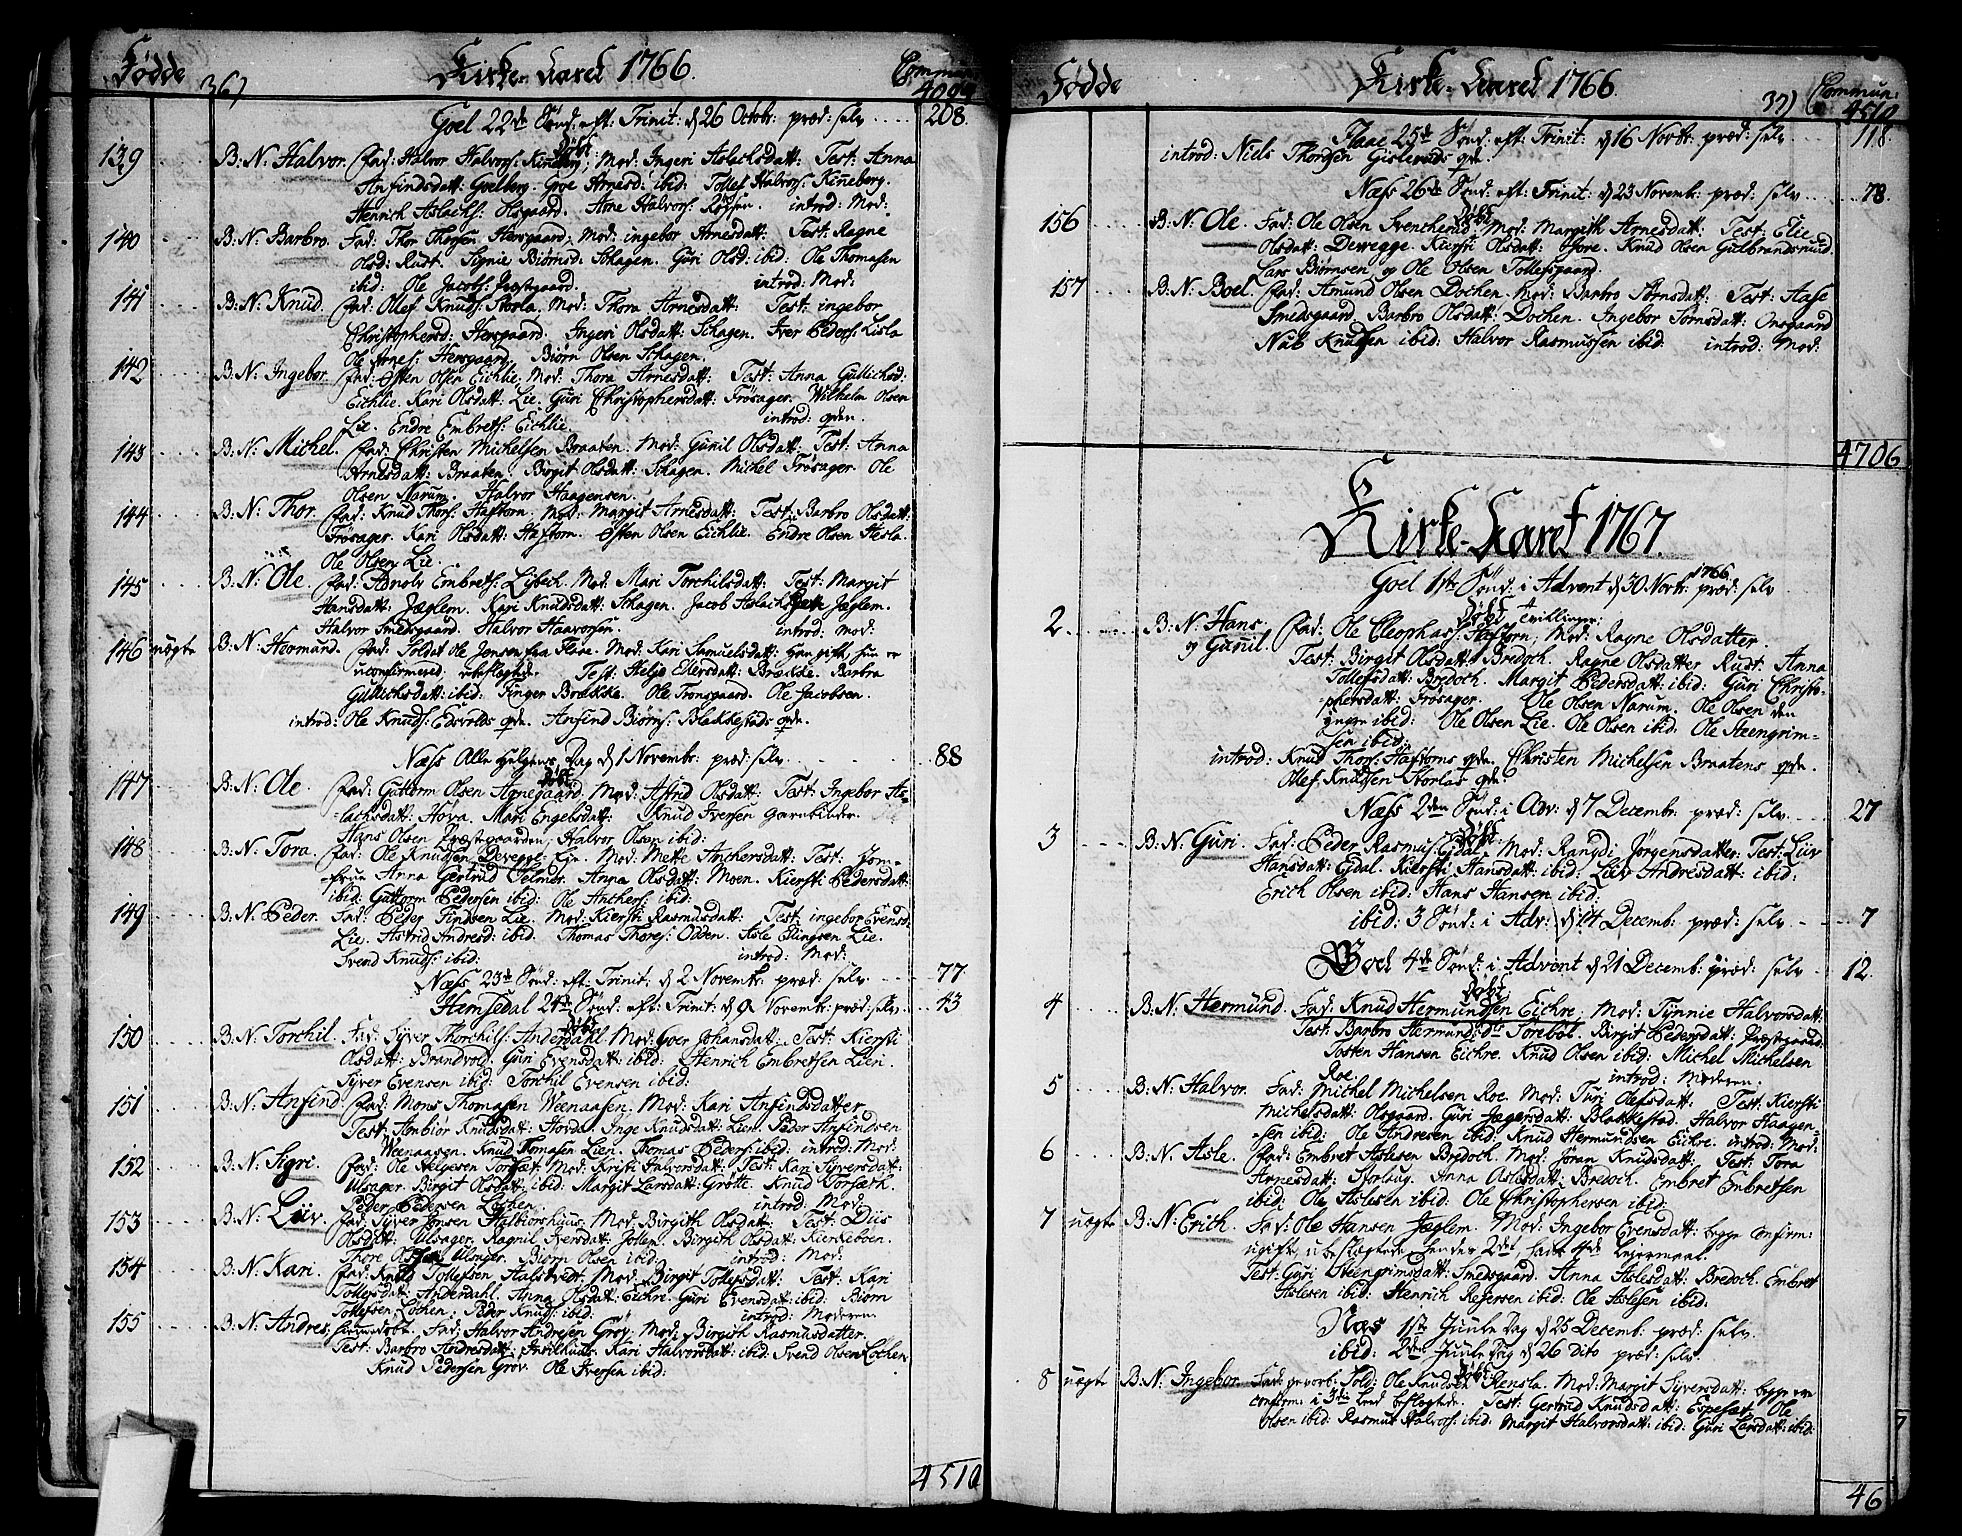 Fødde
36)
Kirke-Aaret 1766.
Commun:
Goel 22de Sønd: eft: Trinit: d 26 Octobr: præd: selv 208.
døbt
139 B: N: Halvor. Fad: Halvor Halvors: Kinneberg, Mod: Ingeri Aslachsdatt: Test: Anna
Anfindsdatt: Goelberg. Groe Arnesd: ibid: Tollef Halvors: Kinneberg.
Henrich Aslachs: Olsgaard. Arne Halvors: introd: Mod:
140 B: N: Barbro. Fad: Thor Thorsen Hersgaard, Mod: ingebor Arnesdatt: Test: Ragne
Olsd: Rudt. Signie Biørnsd: Schagen. Guri Olsd: ibid: Ole Thomasen
ibid: Ole Jacobs: Præstgaard. introd: Mod:
141 B: N: Knud. Fad: Olef Knuds: Storla. Mod: Thora Arnesdatt: Test: ingebor
Christophersd: Hersgaard. Ingeri Olsdatt: Schagen. Iver Peders: Lisla
Ole Arnes: Hersgaard. Biørn Olsen Schagen.
142 B: N: Ingebor. Fad: Østen Olsen Eichlie, Mod: Thora Arnesdatt: Test: Anna Gullichsd:
Eichlie. Kari Olsdatt: Lie. Guri Christophersdatt: Frøsager. Wilhelm Olsen
Lie. Endre Embrets: Eichlie. introd: qvden.
143 B: N: Michel. Fad: Christen Michelsen Braaten. Mod: Gunil Olsdatt: Test: Anna
Arnesdatt: Braaten. Birgit Olsdatt: Schagen. Michel Frøsager. Ole
Olsen Narum. Halvor Haagensen.
144 B: N: Thor. Fad: Knud Thors: Haftorn. Mod: Margit Arnesdatt: Test: Barbro Olsdatt:
Frøsager. Kari Olsdatt: Haftorn. Østen Olsen Eichlie. Endre Olsen Hesla.
Ole Olsen Lie.
145 B: N: Ole. Fad: Arnolv Embrets: Lybech. Mod: Mari Torchilsdatt: Test: Margit
Hansdatt: Jæglem. Kari Knudsdatt: Schagen. Jacob Jæglem.
Halvor Smedsgaard. Halvor Haavorsen. introd: Mod:
146 uægte B: N: Hermand. Fad: Soldat Ole Jensen fra Flaae. Mod: Kari Samuelsdatt: Han gift, hun er
uconfirmered, ubeslægtede. Test: Helje Ellersdatt: Brække. Barbra
Gullichsdatt: ibid: Finger Brække. Ole Tronsgaard. Ole Jacobsen.
introd: Ole Knuds: Edsvolds qvde. Anfind Biørns: Blakkestads qvde.
Næss Alle Helgens Dag d 1 Novembr: præd: selv 88
døbt
147 B: N: Ole. Fad: Guttorm Olsen Agnegaard. Mod: Astrid Olsdatt: Test: Ingebor As-
lachsdatt: Høva. Mari Engebsdatt: Knud Iversen Garnbinder.
Hans Olsen Præstegaarden. Halvor Olsen ibid:
148 B: N: Tora. Fad: Ole Knudsen Devegge Eje. Mod: Mette Anchersdatt: Test: Jom-
frue Anna Gertrud Selmer. Anna Olsdatt: Moen. Kiersti Pedersdatt:
ibid: Guttorm Pedersen ibid: Ole Anthers: ibid:
149 B: N: Peder. Fad: Peder Findsen Lie. Mod: Kiersti Rasmusdatt: Test: ingebor Evensd:
Lie. Astrid Andresd: ibid: Thomas Thores: Odden. Asle Ellingsen Lie.
Svend Knuds: ibid: introd: Mod:
Næss 23de Sønd: eft: Trinit: d 2 Novembr: præd: selv 77
Hemsedal 24de Sønd: eft: Trinit: d 9 Novembr: præd: selv 43
døbt
150 B: N: Torchil. Fad: Syver Thorchils: Anderdahl. Mod: Goer Johansdatt: Test: Kiersti
Olsdatt: Brandvold. Guri Evensdatt: ibid: Henrich Embretsen Lien.
Syver Evensen ibid: Torchil Evensen ibid:
151 B: N: Anfind. Fad: Mons Thomasen Weenaasen. Mod: Kari Anfindsdatter
Test: Ambior Knudsdatt: Hordal. Inge Knudsdatt: Lien. Peder Anfindsen
Weenaasen. Knud Thomasen Lien. Thomas Peders: ibid: introd: Mod:
152 B: N: Sigri. Fad: Ole Helgesen Torsæt. Mod: Kristi Halvorsdatt: Test: Kari Syversdatt:
Ulsager. Birgit Olsdatt: ibid: Margit Larsdatt: Grøtte. Knud Torsæth.
Peder Pedersen introd: Mod:
153 B: N: Liiv. Fad: Syver Jonsen Halbiorshuus. Mod: Birgith Olsdatt: Test: Diis
Olsdatt: Ulsager. Ragnil Iversdatt: Birgith Olsdatt: Kirkebøen.
Thore Ulsager. Biørn Olsen ibid: introd: Mod:
154 B: N: Kari. Fad: Knud Tollefsen Halstvedt. Mod: Birgit Tollefsdatt: Test: Kari
Tollefsdatt: Anderdahl. Anna Olsdatt: Eichre. Guri Evensdatt: ibid: Biørn
Tollefsen Lochen. Peder Knuds: ibid: introd: Moderen
155 B: N: Andres, hiemmedøbt. Fad: Halvor Andresen Grøv, Mod: Birgith Rasmusdatter.
Test: Barbro Andresdatt: Kari Halvorsdatt: ibid: Svend Olsen Lochen
Knud Pedersen Grøv. Ole Iversen ibid:
4510
Fødde
Kirke-Aaret 1766.
37)
Commun:
4510
Flaae 25de Sønd: eft: Trinit: d 16 Novbr: præd: selv 118
introd: Niels Thordsen Gisleruds qvde.
Næss 26de Sønd: eft: Trinit: d 23 Novembr: præd: selv 78.
døbt
156 B: N: Ole. Fad: Ole Olsen Svencherud, Mod: Margith Arnesdatt: Test: Elie
Olsdatt: Dewegge. Kiersti Olsdatt: Hore. Knud Olsen Gulbrandsrud.
Lars Biørnsen og Ole Olsen Tollefsgaard.
157 B: N: Boel. Fad: Amund Olsen Dochen. Mod: Barbro Sørnsdatt: Test: Aase
Smedsgaard. Barbro Olsdatt: Dochen. Ingebor Sornsdatt: Onsgaard
Nils Knudsen ibid: Halvor Rasmussen ibid: introd: Mod:
4706
Kirke-Aaret 1767.
Goel 1ste Sønd: i Advent d 30 Novbr: 1766 præd: selv
døbt Tvillinger:
2 B: N: Hans og Gunil. Fad: Ole Cleophas: Haftorn, Mod: Ragne Olsdatter
Test: Birgit Olsdatt: Bredoch. Ragne Olsdatter Rudt. Anna
Tollefsdatt: Bredoch. Margit Pedersdatt: ibid: Guri Christo-
phersdatt: Frøsager. Ole Olsen Narum. Ole Olsen den
yngre ibid: Ole Olsen Lie. Ole Olsen ibid: Ole Steengrim-
sen ibid:
introd: Knud Thors: Haftorns qvde. Christen Michelsen Braatens qvde.
Olef Knudsen Storlas qvde:
Næss 2den Sønd: i Adv: d 7 Decembr: præd: selv 27
døbt
3 B: N: Guri. Fad: Peder Rasmus: Ejdal, Mod: Rangdi Jørgensdatter: Test: Liiv
Hansdatt: Ejdal. Kiersti Hansdatt: ibid: Liiv Andresdatt: ibid:
Erich Olsen ibid: Hans Hansen ibid:
ibid: 3 Sønd: i Adv: d 14 Decemb: præd: selv 7
Goel 4de Sønd: i Advent d 21 Decemb: præd: selv 12.
døbt
4 B: N: Hermund. Fad: Knud Hermundsen Eichre, Mod: Tynnie Halvorsdatt:
Test: Barbro Hermundsd: Torebøl. Birgit Pedersdatt: Præstgaard.
Tosten Hansen Eichre. Knud Olsen ibid: Michel Michelsen
Roe. introd: Moderen.
5 B: N: Halvor. Fad: Michel Michelsen Roe. Mod: Turi Olefsdatt: Test: Kiersti
Michelsdatt: Olsgaard. Guri Jægersdatt: Blakkestad. Halvor Haagen-
sen ibid: Ole Andresen ibid: Knud Hermundsen Eichre. introd: Mod:
6 B: N: Asle. Fad: Embret Aslesen Bredoch. Mod: Jøran Knudsdatt: Test: Tora
Arnesdatt: Sorlaug. Anna Aslesdatt: Bredoch. Embret Embretsen
ibid: Ole Aslesen ibid: Ole Christophersen ibid:
7 uægte B: N: Erich. Fad: Ole Hansen Jæglem. Mod: Ingebor Evensdatt: begge confirm:
ugifte, ubeslægtede, hendes 2det, hans 4de Lejermaal.
Test: Guri Steengrimsdatt: Smedsgaard. Anna Aslesdatt: Bredoch. Embret
Aslesen ibid: Henrich Rejersen ibid: Ole Aslesen ibid:
Næs 1ste Juule Dag d 25 Decemb: præd: selv.
ibid: 2den Juule Dag d 26 Dito præd: selv.
døbt
8 uægte B: N: Ingebor. Fad: gevorb: Sold: Ole Knudsen Rensla. Mod: Margit Syversdatt: begge ere
confirm: i 3die Leed beslegtede. Test: Gertrud Knudsdatt: Espesæt. Ole
Olsen ibid: Rasmus Halvors: ibid: Margit Halvorsdatt: ibid: Guri Larsdatt: ibid:
46